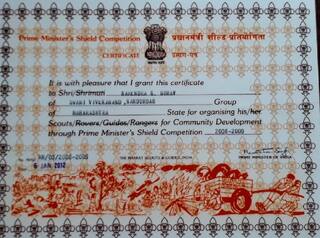 Prime Minister's Shield Competition प्रधानमंत्री शील्ड प्रतियोगिता
CERTIFICATE प्रमाण-पत्र
It is with pleasure that I grant this certificate
to Shri/Shrimati
of SWAMI VIVEKANAND, Group
of MAHARASHTRA State for organising his/her
Scouts/Rovers/Guides/Rangers for Community Development
through Prime Minister's Shield Competition 2008-2009
6 JAN 2012 THE BHARAT SCOUTS & GUIDES, INDIA PRIME MINISTER OF INDIA